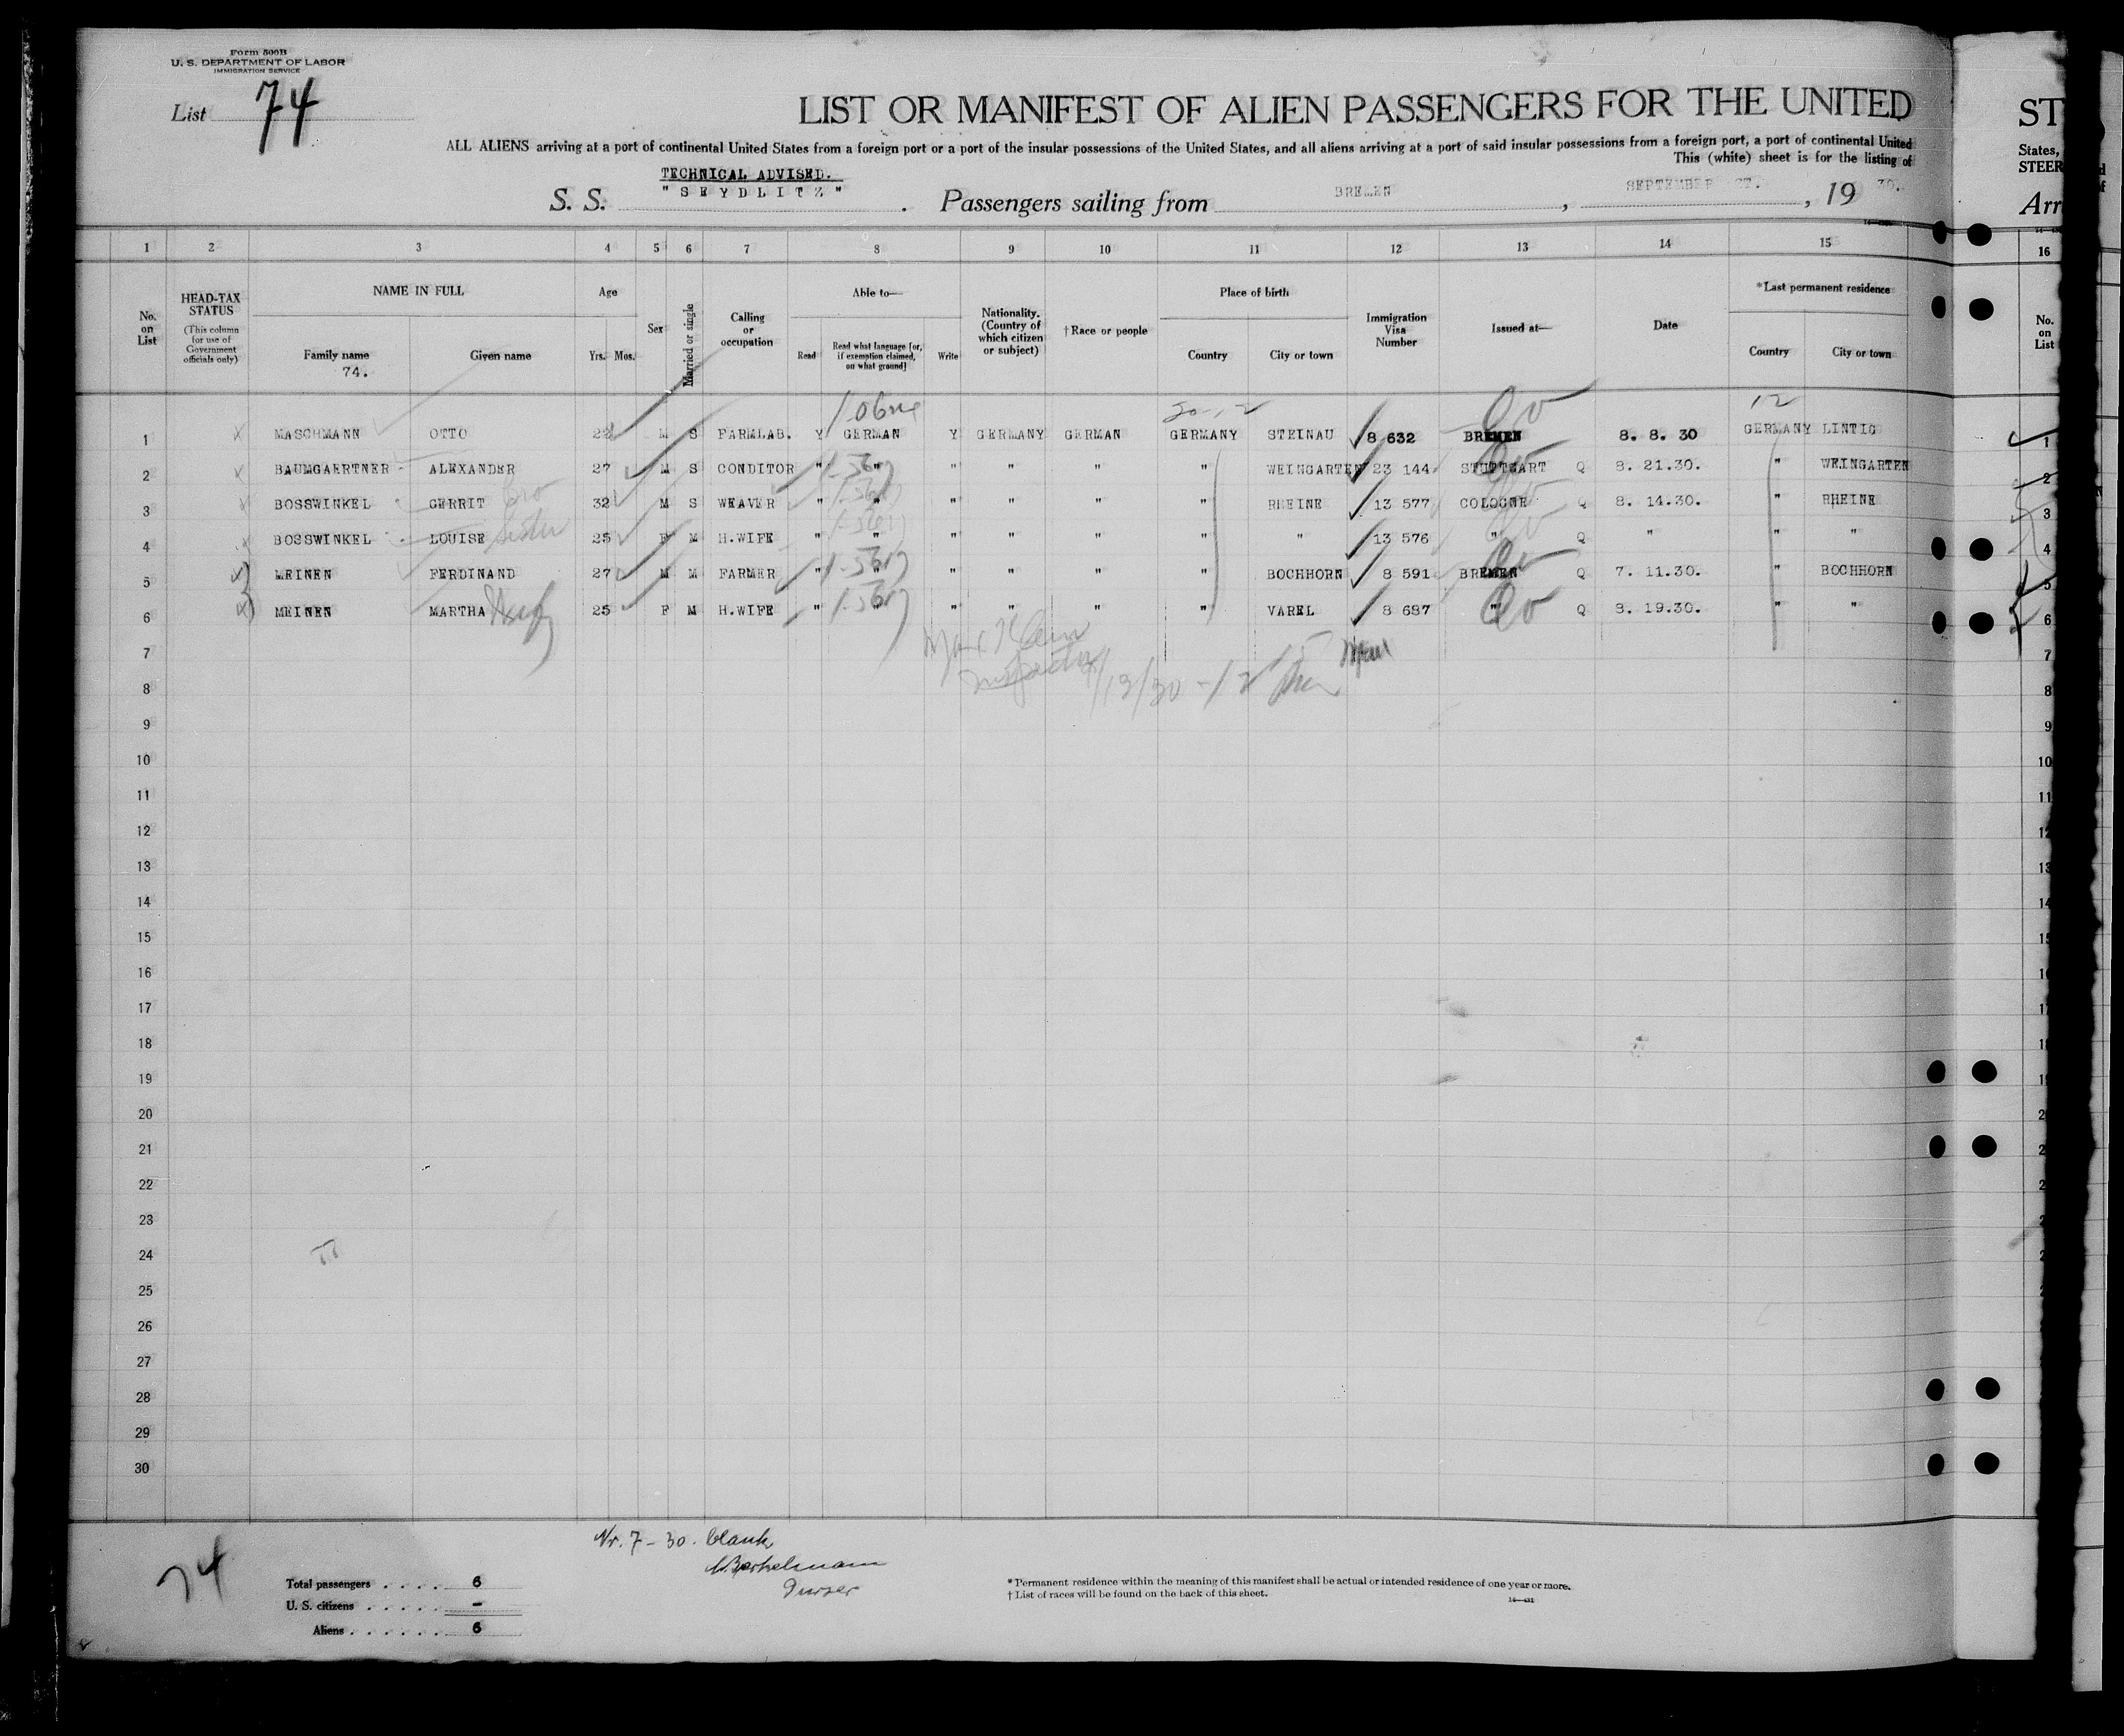 Form 500B
U. S. DEPARTMENT OF LABOR
IMMIGRATION SERVICE
List 74
LIST OR MANIFEST OF ALIEN PASSENGERS FOR THE UNITED
ALL ALIENS arriving at a port of continental United States from a foreign port or a port of the insular possessions of the United States, and all aliens arriving at a port of said insular possessions from a foreign port, a port of continental United
This (white) sheet is for the listing of
TECHNICAL ADVISED.
S. S. "SEYDLITZ". Passengers sailing from BREMEN, SEPTEMBER, 19 30.
ST
States,
STEER
Arr
1 2 3 4 5 6 7 8 9 10 11 12 13 14 15 16
No. on List
HEAD-TAX STATUS
(This column for use of Government officials only)
NAME IN FULL
Family name Given name
74.
Age
Yrs. Mos.
Sex
Married or single
Calling or occupation
Able to—
Read Read what language [or, if exemption claimed, on what ground] Write
Nationality. (Country of which citizen or subject)
†Race or people
Place of birth
Country City or town
Immigration Visa Number
Issued at—
Date
*Last permanent residence
Country City or town
No. on List
1 MASCHMANN OTTO M S FARMLAB. Y GERMAN Y GERMANY GERMAN GERMANY STEINAU 8 632 BREMEN 8. 8. 30 GERMANY LINTIG 1
2 BAUMGAERTNER ALEXANDER 27 M S CONDITOR " " " " " " WEINGARTEN 23 144 STUTTGART Q 8. 21.30. " WEINGARTEN 2
3 BOSSWINKEL GERRIT bro 32 M S WEAVER " " " " " " RHEINE 13 577 COLOGNE Q 8. 14.30. " RHEINE 3
4 BOSSWINKEL LOUISE sister 25 F M H.WIFE " " " " " " " 13 576 " Q " " " 4
5 MEINEN FERDINAND 27 M M FARMER " " " " " " BOCHHORN 8 591 BREMEN Q 7. 11.30. " BOCHHORN 5
6 MEINEN MARTHA 25 F M H.WIFE " " " " " VAREL 8 687 " Q 8. 19.30. " " 6
7 7
8 8
9 9
10 10
11 11
12 12
13 13
14 14
15 15
16
17
18
19
20
21
22
23
24
25
26
27
28
29
30
Nr. 7 - 30. blank
Purser
74
Total passengers . . . . 6
U. S. citizens . . . . . –
Aliens . . . . . . 6
*Permanent residence within the meaning of this manifest shall be actual or intended residence of one year or more.
†List of races will be found on the back of this sheet.